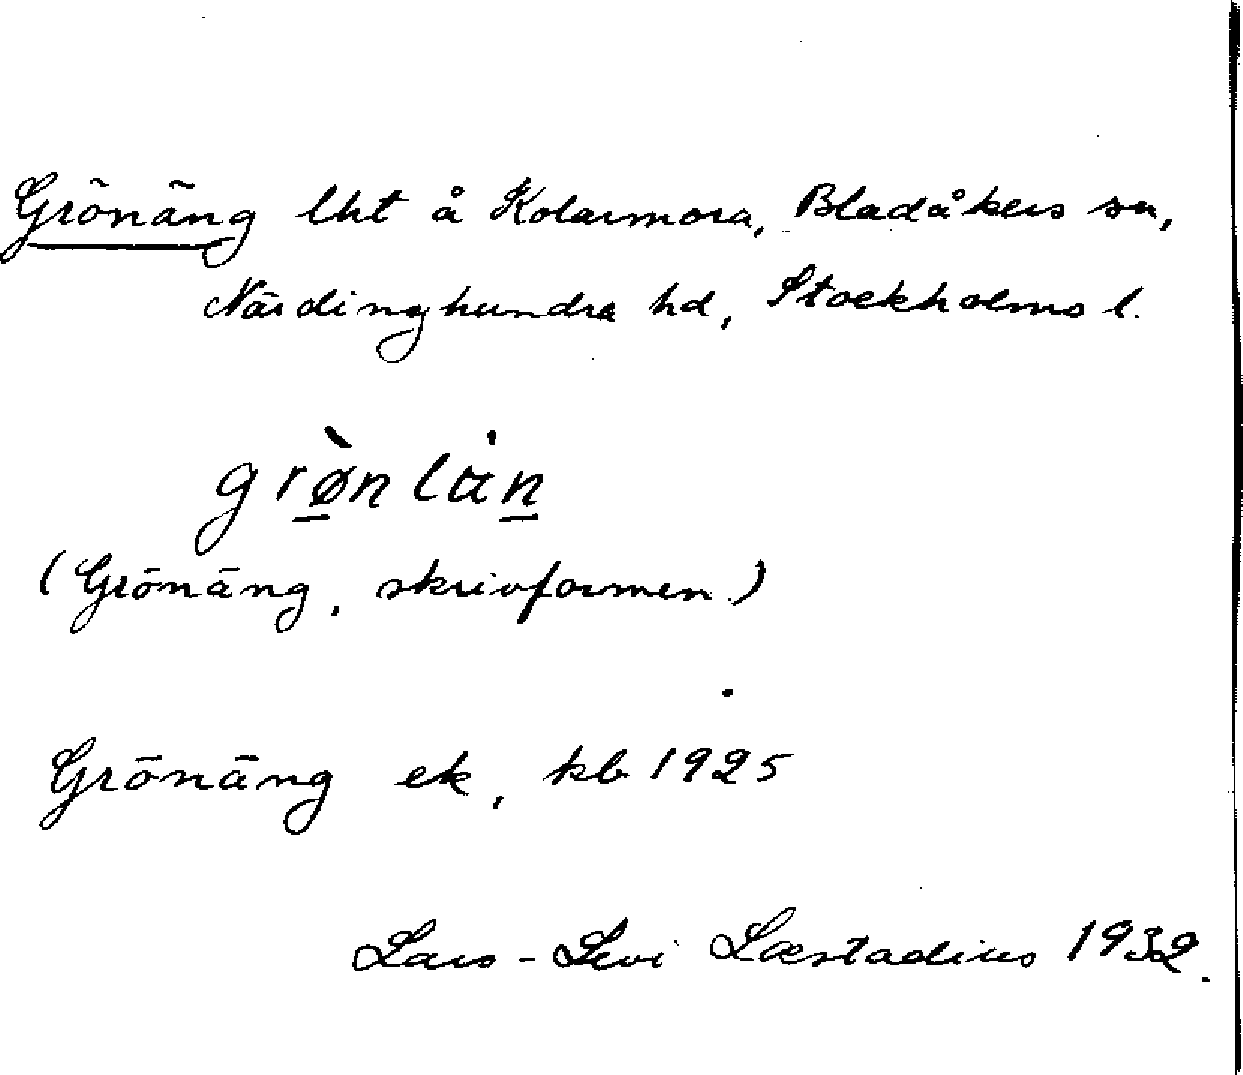 Grönäng lht å Kolarmora, Bladåkers sn,
Närdinghundra hd, Stockholms l.
grø̀nlàn
(Grönäng, skrivformen)
Grönäng ek, kb 1925
Lars-Levi Læstadius 1932.